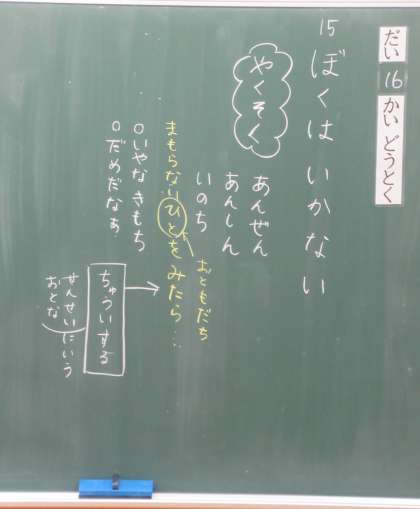 だい16かい どうとく
15 ぼくは いかない
やくそく
あんぜん
あんしん
いのち
おともだち
まもらないひとをみたら…
○いやなきもち
○だめだなぁ
ちゅういする
せんせいにいう
おとな